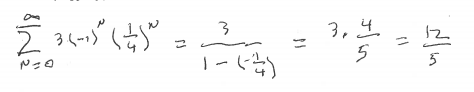 ∑_{n=0}^{∞} 3(-1)^n (1/4)^n = 3/(1-(-1/4)) = 3 · 4/5 = 12/5